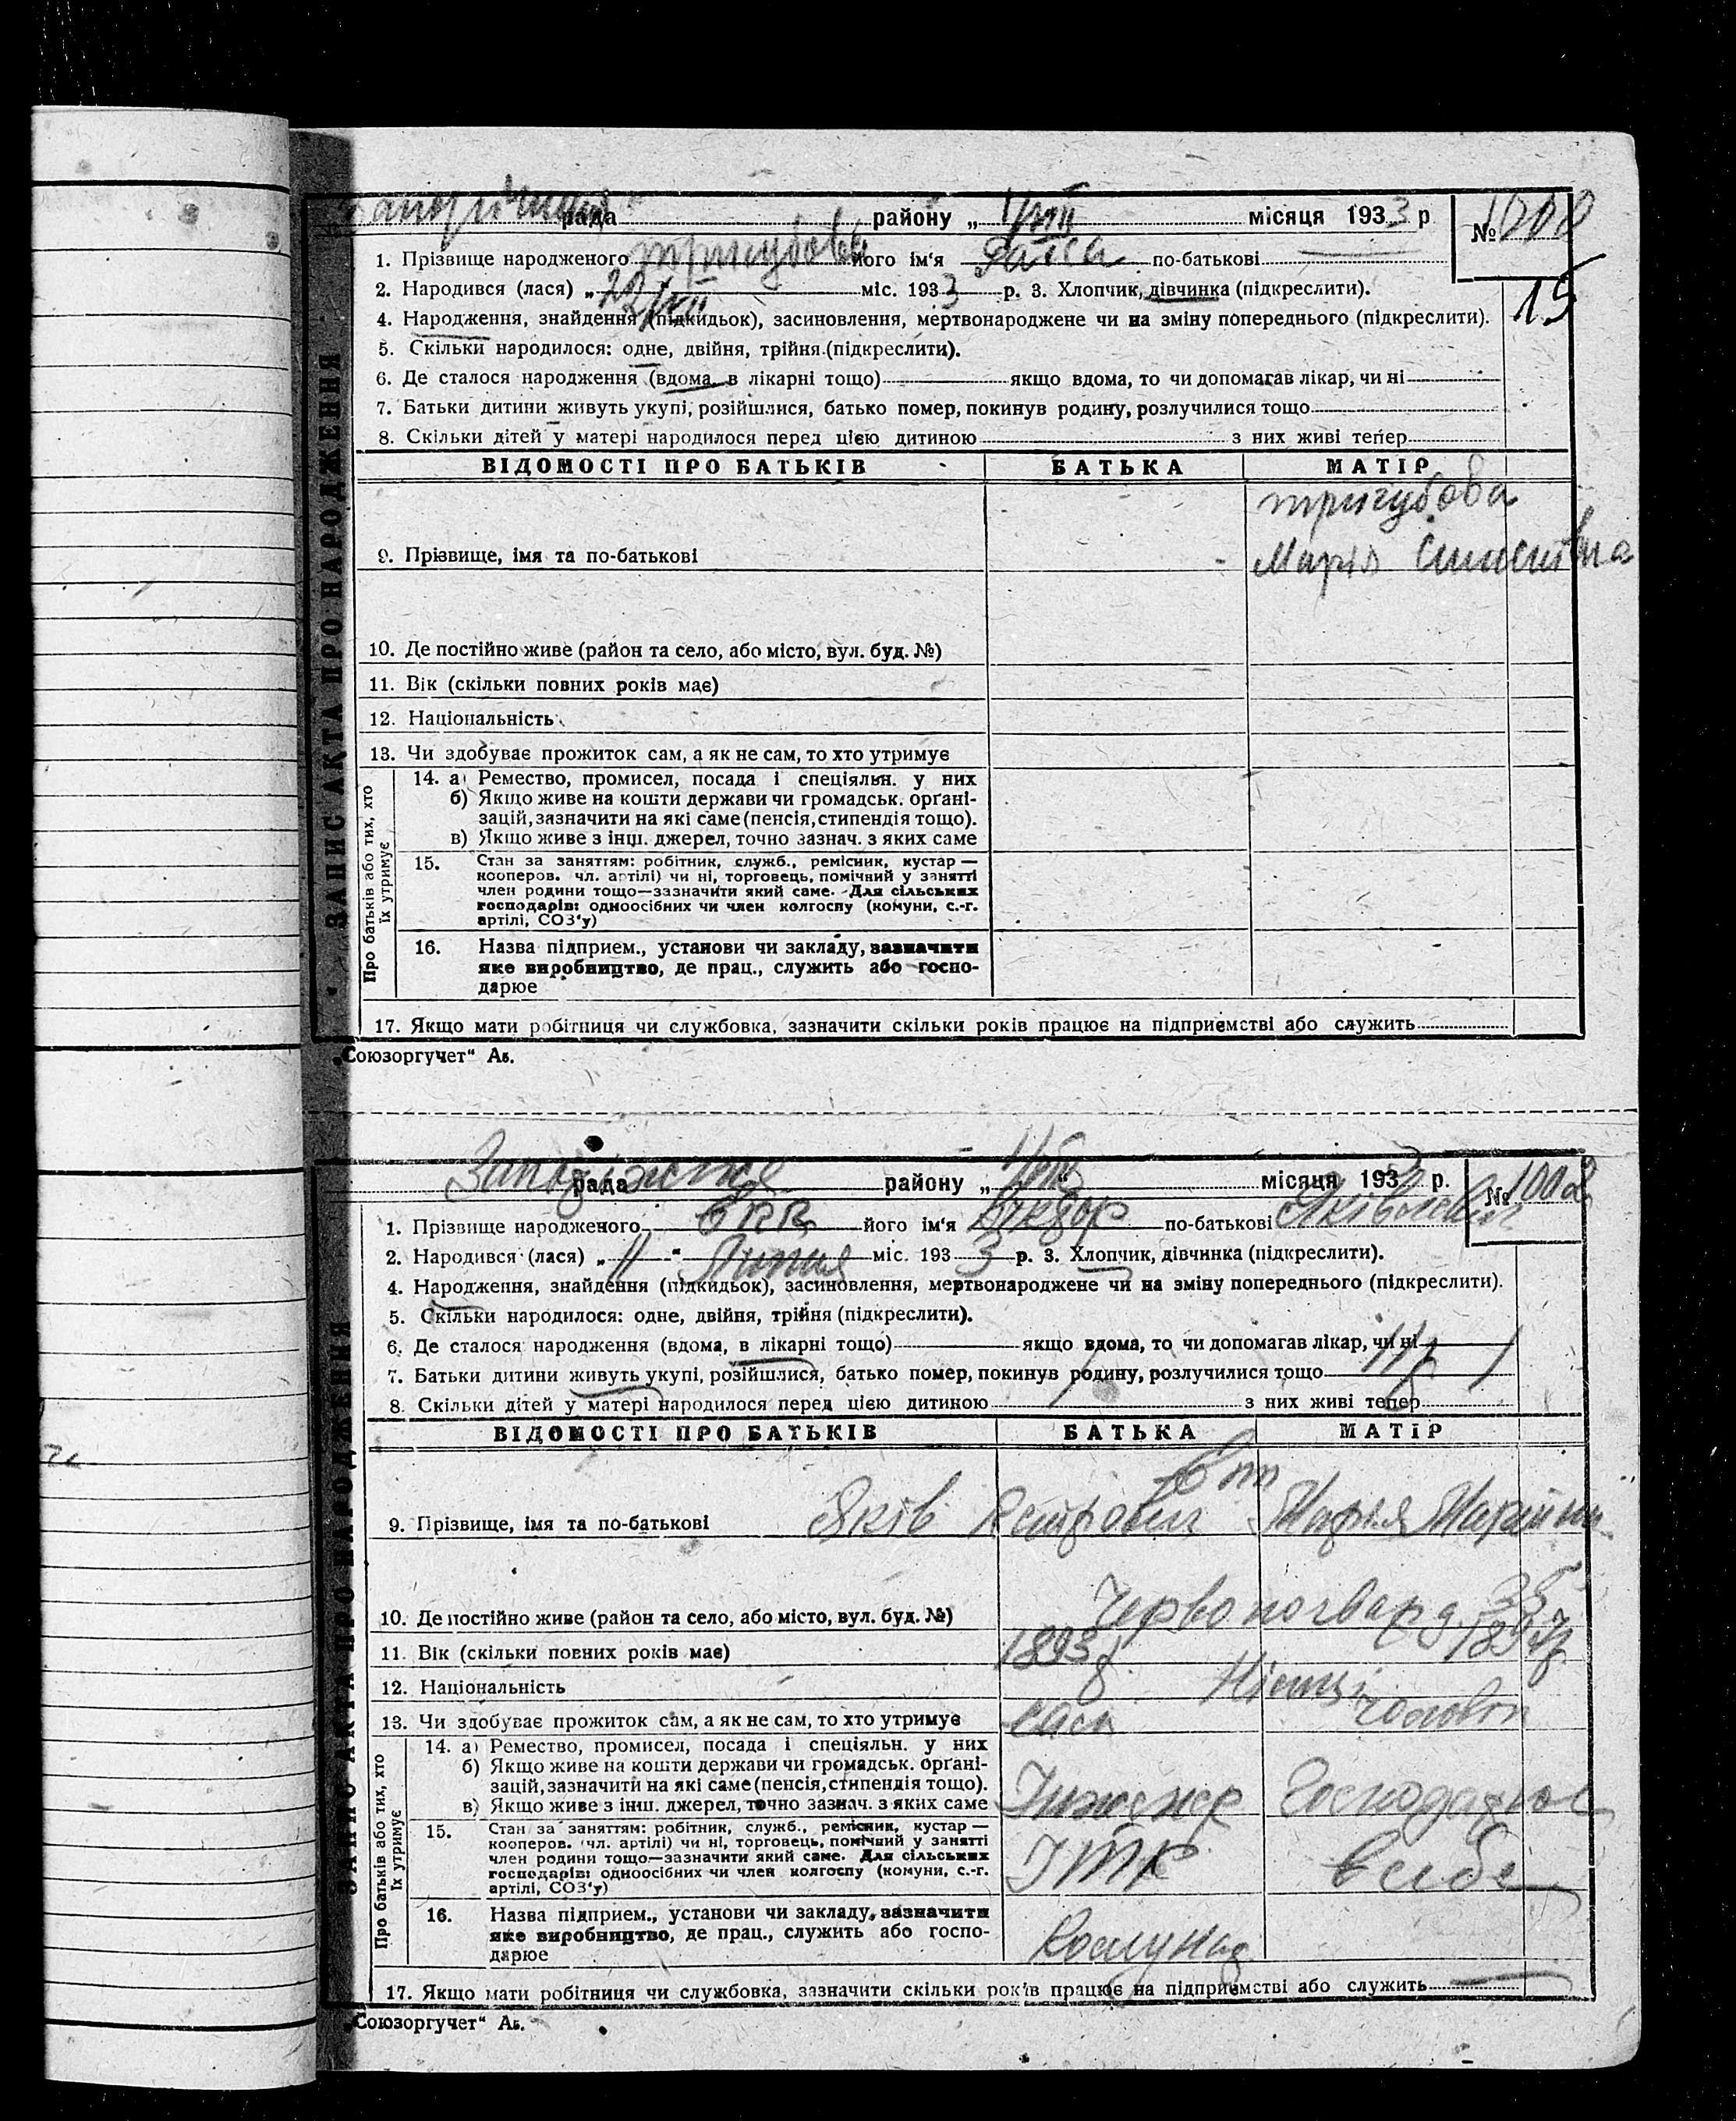 рада району „1/VIII“ місяця 1933 р № 1000
1. Прізвище народженого Тригубова його ім'я Раїса по-батькові
2. Народився (лася) „22/VII міс. 1933 р. 3. Хлопчик, дівчинка (підкреслити).
15
4. Народження, знайдення (підкидьок), засиновлення, мертвонароджене чи на зміну попереднього (підкреслити).
5. Скільки народилося: одне, двійня, трійня (підкреслити).
6. Де сталося народження (вдома, в лікарні тощо) якщо вдома, то чи допомагав лікар, чи ні
7. Батьки дитини живуть укупі, розійшлися, батько помер, покинув родину, розлучилися тощо
8. Скільки дітей у матері народилося перед цією дитиною з них живі тепер
ВІДОМОСТІ ПРО БАТЬКІВ БАТЬКА МАТІР
Тригубова
9. Прізвище, імя та по-батькові Марія
10. Де постійно живе (район та село, або місто, вул. буд. №)
11. Вік (скільки повних років має)
12. Національність
13. Чи здобуває прожиток сам, а як не сам, то хто утримує
14. а) Ремество, промисел, посада і спеціяльн. у них
б) Якщо живе на кошти держави чи громадськ. орґані-
зацій, зазначити на які саме (пенсія, стипендія тощо).
в) Якщо живе з інш. джерел, точно зазнач. з яких саме
15. Стан за заняттям: робітник, служб., ремісник, кустар —
кооперов. чл. артілі) чи ні, торговець, помічний у занятті
член родини тощо—зазначити який саме. Для сільських
господарів: одноосібних чи член колгоспу (комуни, с.-г.
артілі, СОЗ'у)
16. Назва підприєм., установи чи закладу, зазначити
яке виробництво, де прац., служить або госпо-
дарює
17. Якщо мати робітниця чи службовка, зазначити скільки років працює на підприємстві або служить
Про батьків або тих, хто
їх утримує
ЗАПИС АКТА ПРО НАРОДЖЕННЯ
„Союзоргучет“ Аб.
Запоріжжя рада району „ “ місяця 1933 р. № 1002
1. Прізвище народженого його ім'я Віктор по-батькові Яківлевич
2. Народився (лася) „11“ Липня міс. 1933 р. 3. Хлопчик, дівчинка (підкреслити).
4. Народження, знайдення (підкидьок), засиновлення, мертвонароджене чи на зміну попереднього (підкреслити).
5. Скільки народилося: одне, двійня, трійня (підкреслити).
6. Де сталося народження (вдома, в лікарні тощо) якщо вдома, то чи допомагав лікар, чи ні
7. Батьки дитини живуть укупі, розійшлися, батько помер, покинув родину, розлучилися тощо
8. Скільки дітей у матері народилося перед цією дитиною з них живі тепер
ВІДОМОСТІ ПРО БАТЬКІВ БАТЬКА МАТІР
9. Прізвище, імя та по-батькові Яків Петрович Марія
10. Де постійно живе (район та село, або місто, вул. буд. №) Червоногвард. 35
11. Вік (скільки повних років має) 1893 р. 1897 р.
12. Національність Німці
13. Чи здобуває прожиток сам, а як не сам, то хто утримує сам чоловік
14. а) Ремество, промисел, посада і спеціяльн. у них
б) Якщо живе на кошти держави чи громадськ. орґані-
зацій, зазначити на які саме (пенсія, стипендія тощо).
в) Якщо живе з інш. джерел, точно зазнач. з яких саме Інженер Господарює
15. Стан за заняттям: робітник, служб., ремісник, кустар —
кооперов. чл. артілі) чи ні, торговець, помічний у занятті
член родини тощо—зазначити який саме. Для сільських
господарів: одноосібних чи член колгоспу (комуни, с.-г.
артілі, СОЗ'у)
ІТР в себе
16. Назва підприєм., установи чи закладу, зазначити
яке виробництво, де прац., служить або госпо-
дарює Комунар
17. Якщо мати робітниця чи службовка, зазначити скільки років працює на підприємстві або служить
Про батьків або тих, хто
їх утримує
ЗАПИС АКТА ПРО НАРОДЖЕННЯ
„Союзоргучет“ Аб.